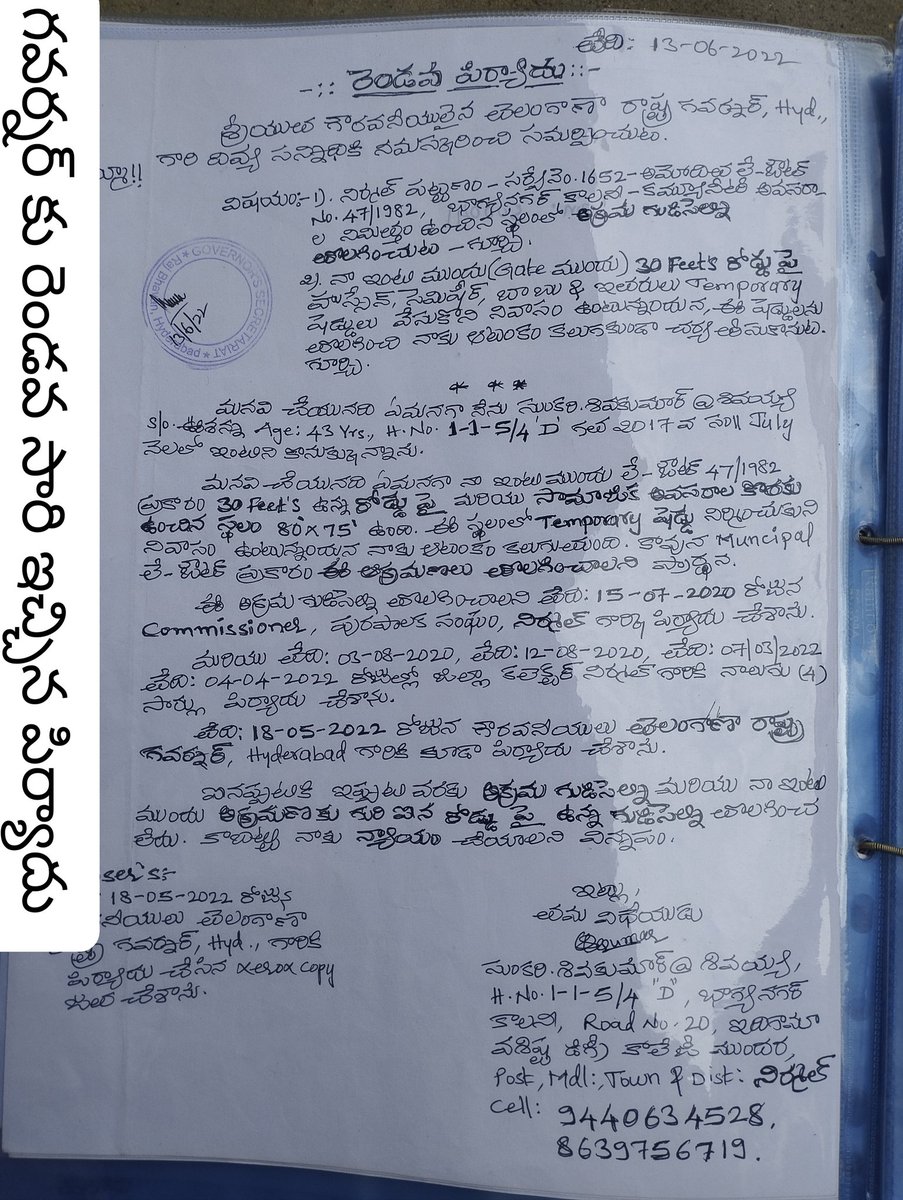 గవర్నర్ కు రెండవ సారి ఇచ్చిన పిర్యాదు
తేది: 13-06-2022
-:: రెండవ పిర్యాదు ::-
శ్రీయుత గౌరవనీయులైన తెలంగాణా రాష్ట్ర గవర్నర్, Hyd.,
గారి దివ్య సన్నిధికి నమస్కరించి సమర్పించుట.
!!
విషయం:- 1). నిర్మల్ పట్టణం - సర్వే నెం. 1652 - అమోదిత లే-ఔట్
No. 47/1982, భాగ్యనగర్ కాలని - కమ్యూనిటి అవసరా-
ల నిమిత్తం ఉంచిన స్థలంలో అక్రమ గుడిసెలన్ని
తొలగించుట - గూర్చి.
2). నా ఇంటి ముందు (Gate ముందు) 30 Feet's రోడ్డు పై
హుస్సేన్, సెమిషేర్, బాబు & ఇతరులు Temporary
షెడ్డులు వేసుకొని నివాసం ఉంటున్నందున, ఈ షెడ్డులను
తొలగించి నాకు ఆటంకం కలుగకుండా చర్య తీసుకొనుట.
గూర్చి.
* * *
GOVERNOR'S SECRETARIAT * Raj Bhavan, Hyderabad *
మనవి చేయునది ఏమనగా నేను సుంకరి.శివకుమార్ @ శివయ్య
S/o. ఆశన్న Age: 43 Yrs., H.No. 1-1-5/4 'D' గల 2017 వ సం॥ July
నెలలో ఇంటిని కొనుక్కున్నాను.
మనవి చేయునది ఏమనగా నా ఇంటి ముందు లే-ఔట్ 47/1982
ప్రకారం 30 Feet's ఉన్న రోడ్డు పై మరియు సామాజిక అవసరాల కొరకు
ఉంచిన స్థలం 80'x75' ఉంది. ఈ స్థలంలో Temporary షెడ్డు నిర్మించుకుని
నివాసం ఉంటున్నందున నాకు ఆటంకం కలుగుతుంది. కావున Muncipal
లే-ఔట్ ప్రకారం ఈ ఆక్రమణలు తొలగించాలని ప్రార్థన.
ఈ అక్రమ గుడిసెలన్ని తొలగించాలని తేది: 15-07-2020 రోజున
Commissioner, పురపాలక సంఘం, నిర్మల్ గార్కి పిర్యాదు చేశాను.
మరియు తేది: 03-08-2020, తేది: 12-08-2020, తేది: 07/03/2022
తేది: 04-04-2022 రోజుల్లో జిల్లా కలెక్టర్ నిర్మల్ గారికి నాలుగు (4)
సార్లు పిర్యాదు చేశాను.
తేది: 18-05-2022 రోజున గౌరవనీయులు తెలంగాణా రాష్ట్ర
గవర్నర్, Hyderabad గారికి కూడా పిర్యాదు చేశాను.
ఐనప్పటికి ఇప్పటి వరకు అక్రమ గుడిసెలన్ని మరియు నా ఇంటి
ముందు ఆక్రమణకు గురి ఐన రోడ్డు పై ఉన్న గుడిసెలన్ని తొలగించ
లేదు. కాబట్టి నాకు న్యాయం చేయాలని విన్నపం.
18-05-2022 రోజున
నీయులు తెలంగాణా
గవర్నర్, Hyd., గారికి
పిర్యాదు చేసిన xerox copy
జత చేశాను.
ఇట్లు,
తమ విధేయుడు
సుంకరి.శివకుమార్ @ శివయ్య,
H.No. 1-1-5/4 "D", భాగ్యనగర్
కాలని, Road No. 20, ఇదిగామా
వశిష్ట డిగ్రీ కాలేజి ముందర,
Post, Mdl:, Town & Dist: నిర్మల్
Cell: 9440634528,
8639756719.